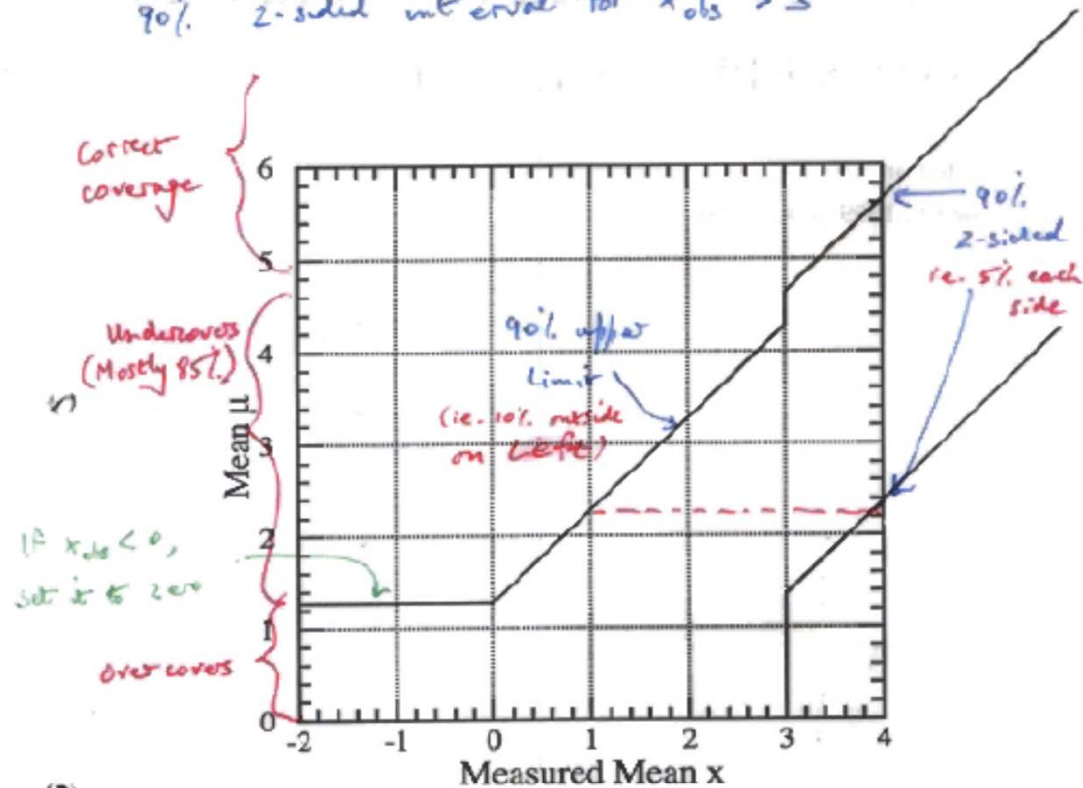 90% 2-sided interval for x obs > 3
Correct
coverage
Undercovers
(Mostly 85%)
5
If x obs < 0,
set it to zero
Over covers
90% upper
Limit
(ie. 10% outside
on Left)
90%
2-sided
ie. 5% each
side
Mean μ
6
5
4
3
2
1
0
-2 -1 0 1 2 3 4
Measured Mean x